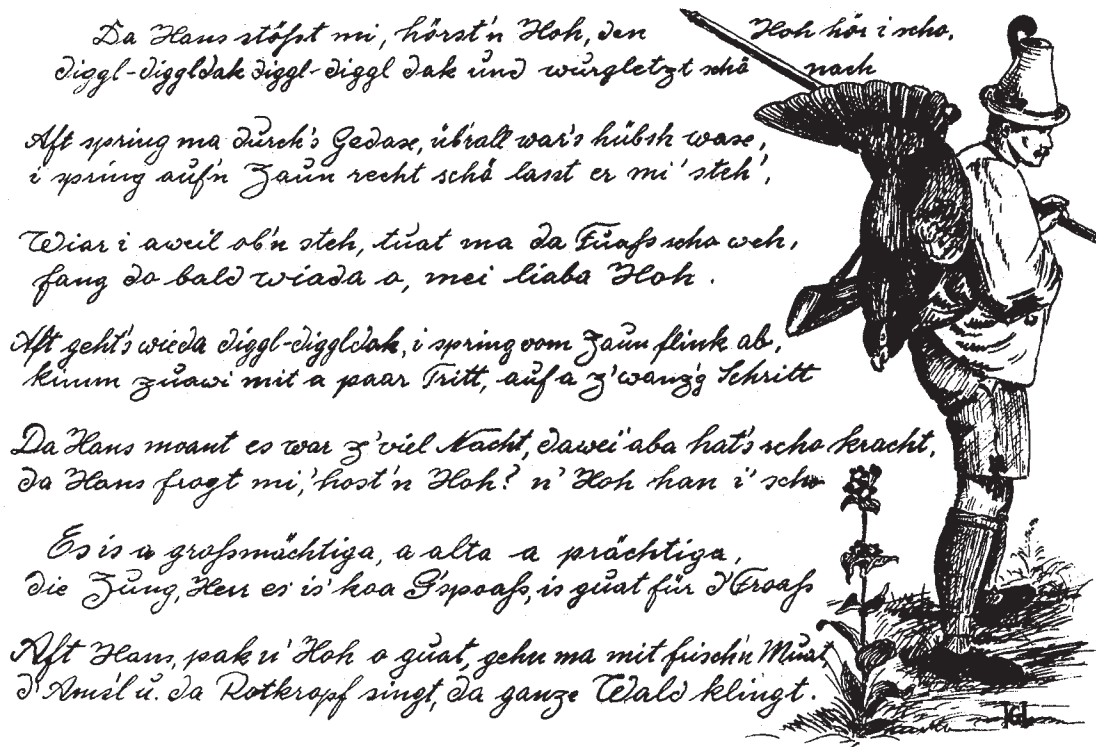 Da Hans stößt mi, hörst'n Hoh, den Hoh hör i scho,
diggl-diggldak diggl-diggl dak und würgletzt schö nach
Aft spring ma durch's Gedax, üb'rall war's hübsh wax,
i spring auf'n Zaun recht schö lasst er mi' steh',
Wiar i aweil ob'n steh, tuat ma da Fuaß scho weh,
fang do bald wiada o, mei liaba Hoh.
Aft geht's wieda diggl-diggldak, i spring vom Zaun flink ab,
kimm zuawi mit a paar Tritt, auf a z'wanz'g Schritt
Da Hans moant es war z'viel Nacht, dawei' aba hat's scho kracht,
da Hans frogt mi,' host'n Hoh? n' Hoh han i' scho
Es is a großmächtiga, a alta a prächtiga,
die Zung, Herr es is' koa G'spoaß, is guat für d'Froaß
Aft Hans, pak n' Hoh o guat, gehn ma mit frisch'n Muat
d'Ams'l u. da Rotkropf singt, da ganze Wald klingt.